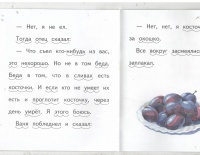 — Нет, я не ел.
Тогда отец сказал:
— Что съел кто-нибудь из вас,
это нехорошо. Но не в том беда.
Беда в том, что в сливах есть
косточки. И если кто не умеет их
есть и проглотит косточку, через
день умрёт. Я этого боюсь.
Ваня побледнел и сказал:
— Нет, нет, я косточку
за окошко.
Все вокруг засмеялись
заплакал.